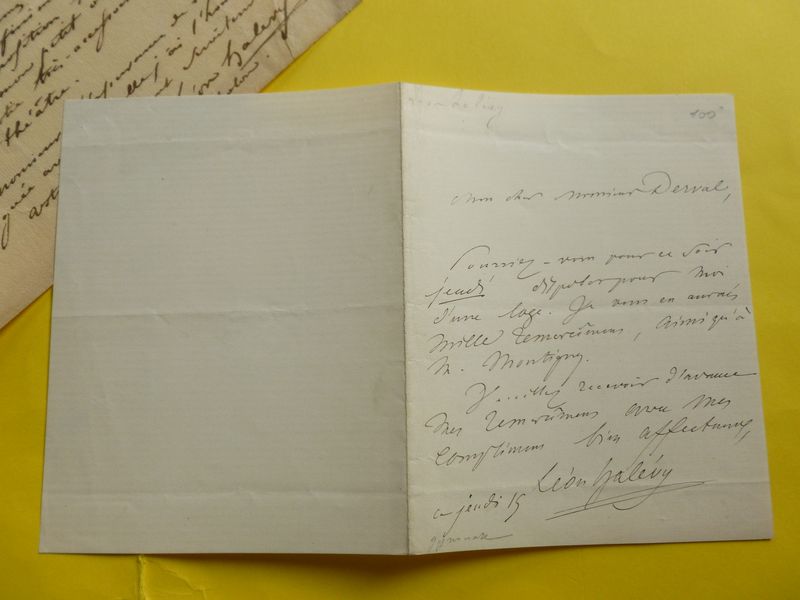 finis
position
mon petit
très-
théâtre. à l'hon
Léon halévy
monsieur
Léon halévy
100
Mon cher Monsieur Derval,
Pourriez-vous pour ce soir
jeudi disposer pour moi
d'une loge. Je vous en aurais
mille remercîmens, ainsi qu'à
M. Montigny.
Veuillez recevoir d'avance
mes remercîmens avec mes
complimens bien affectueux,
Léon halévy
ce jeudi 15